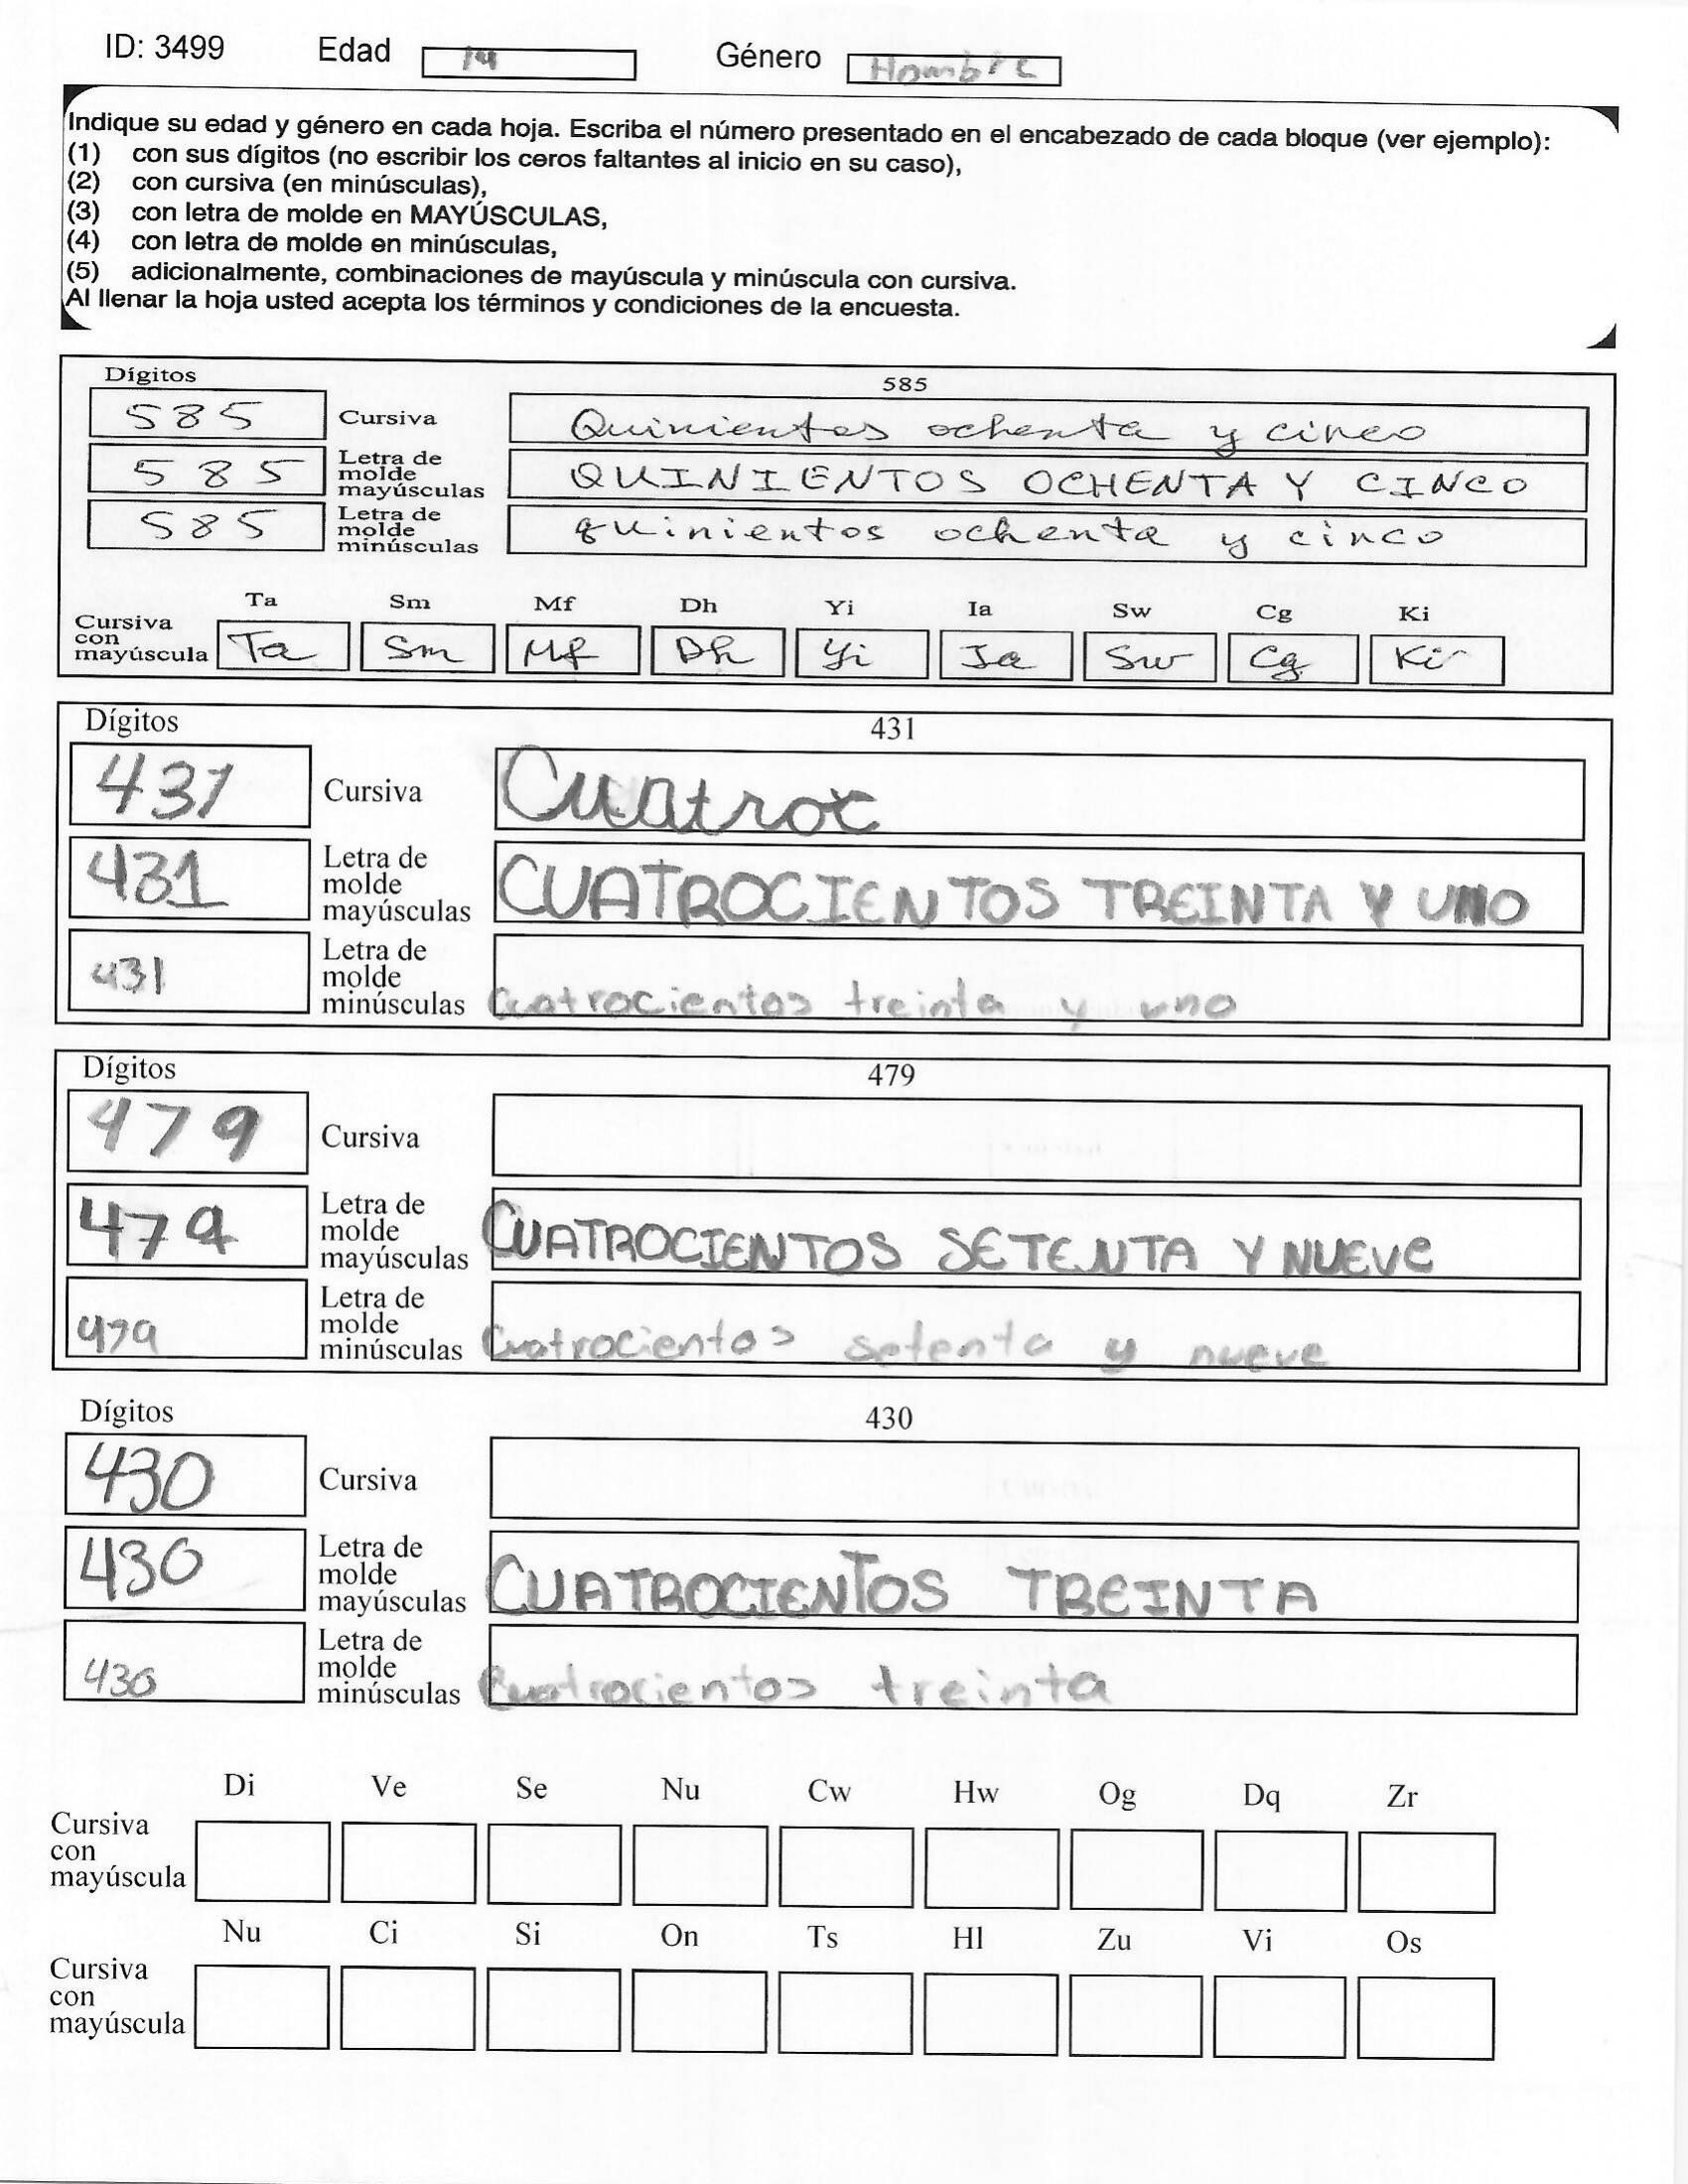 ID: 3499 Edad 14 Género Hombre
Indique su edad y género en cada hoja. Escriba el número presentado en el encabezado de cada bloque (ver ejemplo):
(1) con sus dígitos (no escribir los ceros faltantes al inicio en su caso),
(2) con cursiva (en minúsculas),
(3) con letra de molde en MAYÚSCULAS,
(4) con letra de molde en minúsculas,
(5) adicionalmente, combinaciones de mayúscula y minúscula con cursiva.
Al llenar la hoja usted acepta los términos y condiciones de la encuesta.
Dígitos 585
585 Cursiva Quinientos ochenta y cinco
585 Letra de molde mayúsculas QUINIENTOS OCHENTA Y CINCO
585 Letra de molde minúsculas quinientos ochenta y cinco
Ta Sm Mf Dh Yi Ia Sw Cg Ki
Cursiva con mayúscula Ta Sm Mf Dh Yi Ia Sw Cg Ki
Dígitos 431
431 Cursiva Cuatroc
431 Letra de molde mayúsculas CUATROCIENTOS TREINTA Y UNO
431 Letra de molde minúsculas Cuatrocientos treinta y uno
Dígitos 479
479 Cursiva
479 Letra de molde mayúsculas CUATROCIENTOS SETENTA Y NUEVE
479 Letra de molde minúsculas Cuatrocientos setenta y nueve
Dígitos 430
430 Cursiva
430 Letra de molde mayúsculas CUATROCIENTOS TREINTA
430 Letra de molde minúsculas Cuatrocientos treinta
Di Ve Se Nu Cw Hw Og Dq Zr
Cursiva con mayúscula
Nu Ci Si On Ts Hl Zu Vi Os
Cursiva con mayúscula